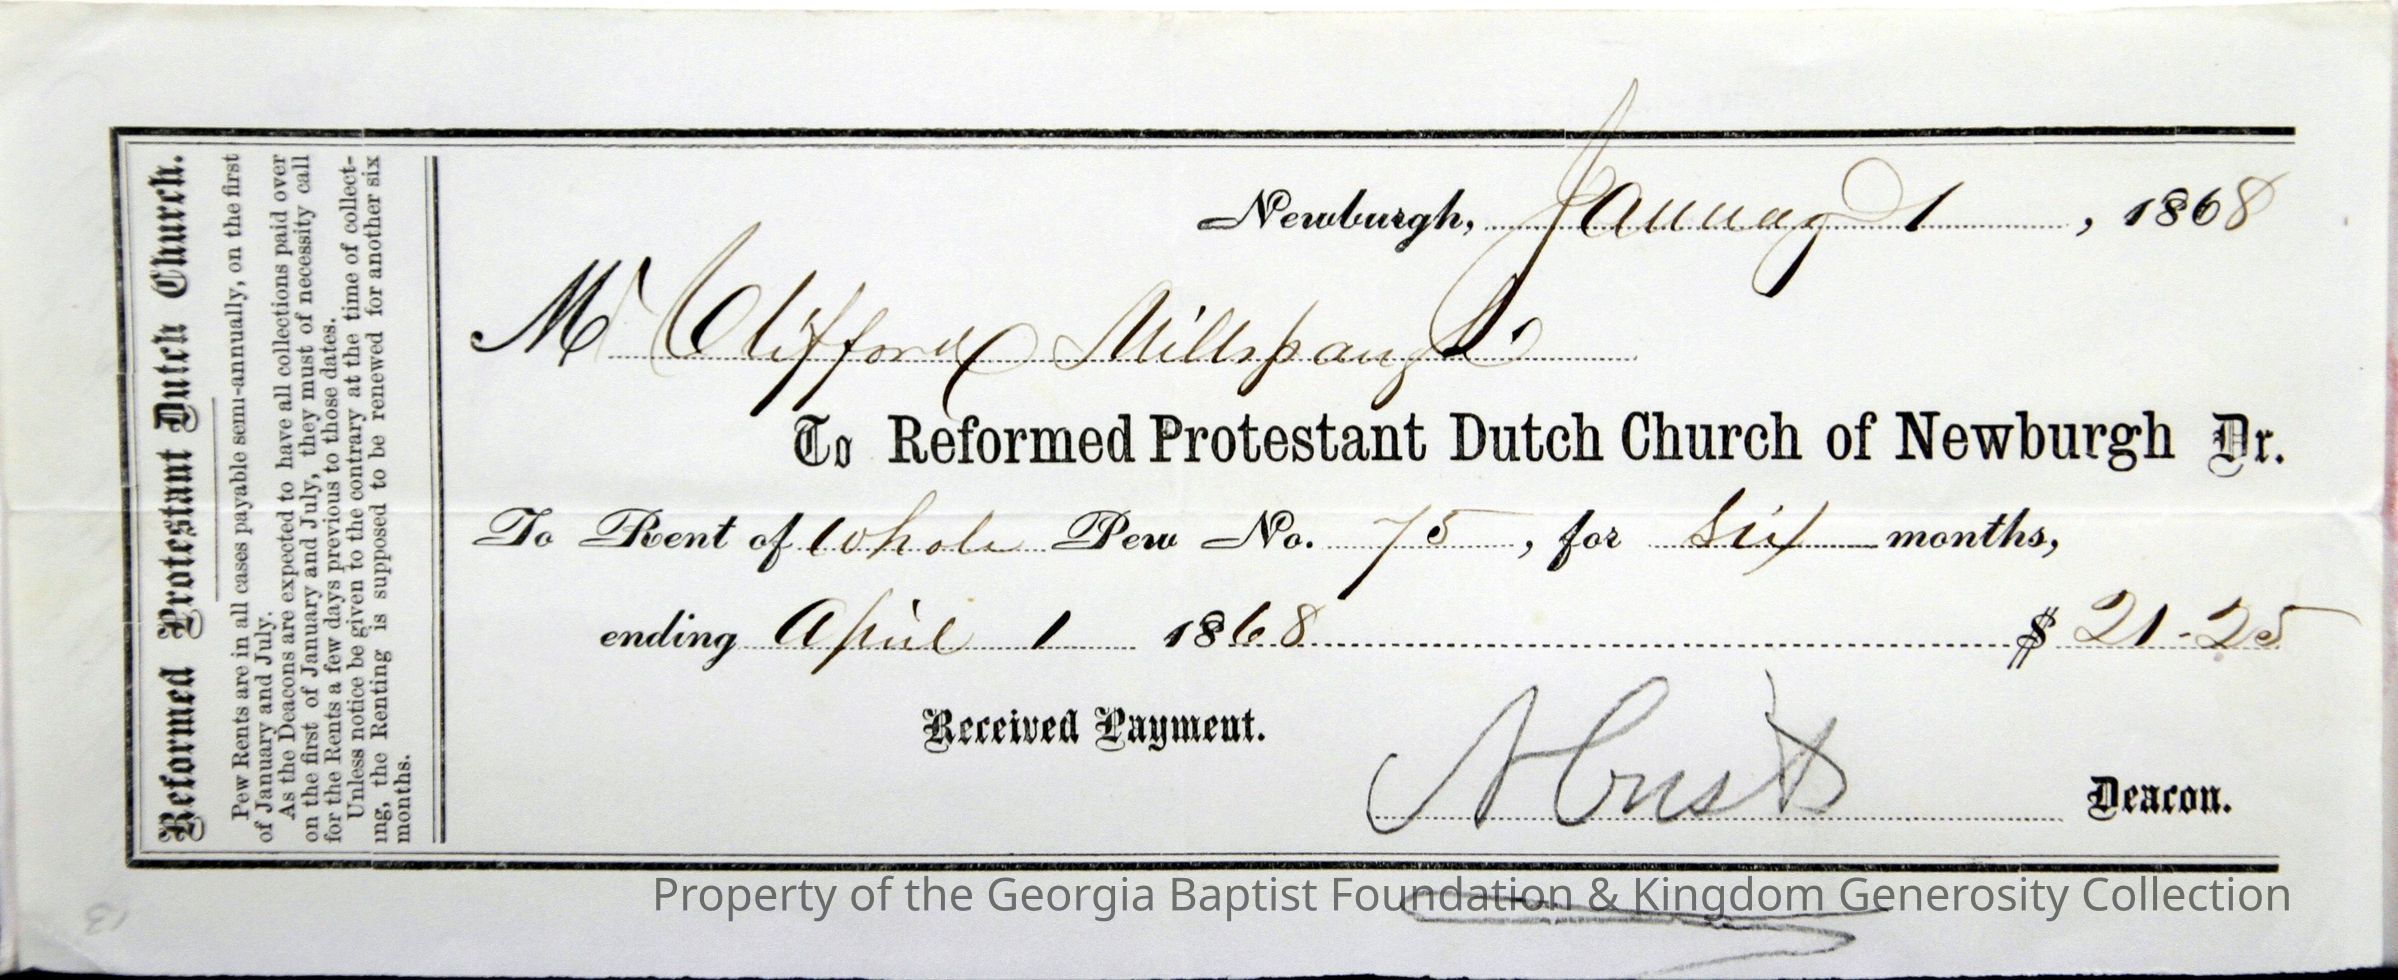 Reformed Protestant Dutch Church.
Pew Rents are in all cases payable semi-annually, on the first
of January and July.
As the Deacons are expected to have all collections paid over
on the first of January and July, they must of necessity call
for the Rents a few days previous to those dates.
Unless notice be given to the contrary at the time of collect-
ing, the Renting is supposed to be renewed for another six
months.
Newburgh, January 1, 1868
Mr Clifford Millspaugh
To Reformed Protestant Dutch Church of Newburgh Dr.
To Rent of whole Pew No. 75, for Six months,
ending April 1 1868 $ 21-25
Received Payment.
Deacon.
Property of the Georgia Baptist Foundation & Kingdom Generosity Collection
13